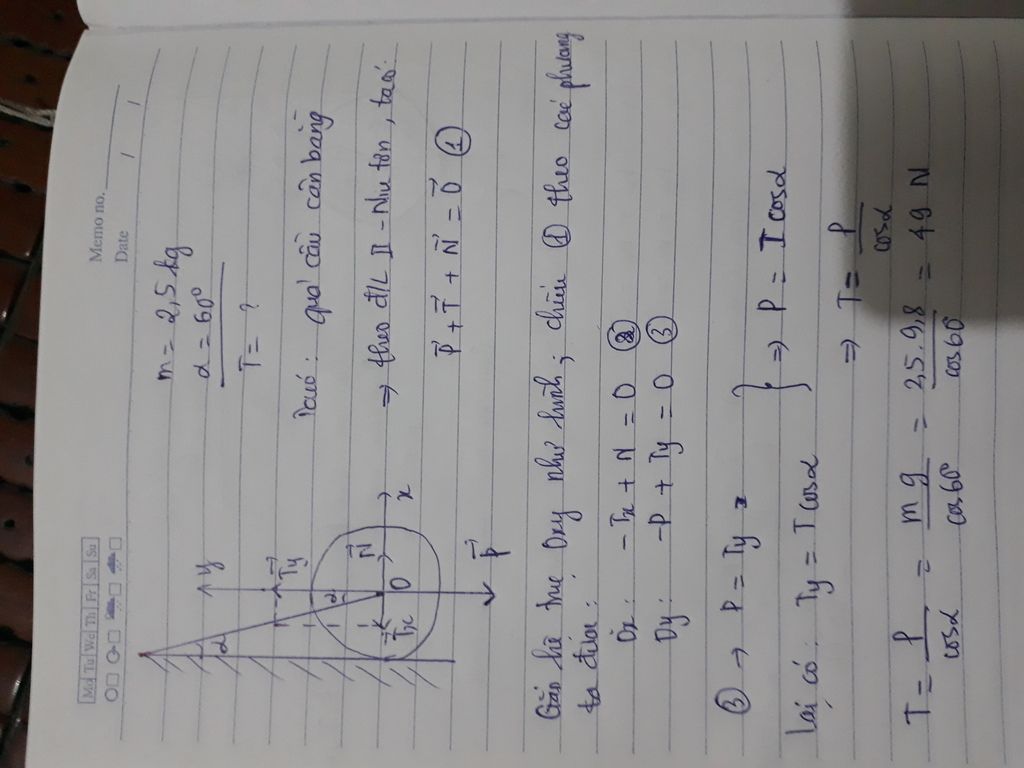 Memo no.
Date / /
Mo Tu We Th Fr Sa Su
m = 2,5 kg
α = 60°
T = ?
Ta có: quả cầu cân bằng
=> theo đ/L II - Niu tơn, ta có:
P⃗ + T⃗ + N⃗ = 0⃗ ①
y
α
T⃗y
α
N⃗
T⃗x
O
x
P⃗
Gắn hệ trục Oxy như hình; chiếu ① theo các phương
ta được:
Ox: -Tx + N = 0 ②
Oy: -P + Ty = 0 ③
③ → P = Ty
Lại có: Ty = T cosα
} => P = T cosα
=> T = P/cosα
T = P/cosα = mg/cos60° = 2,5.9,8/cos60° = 49 N